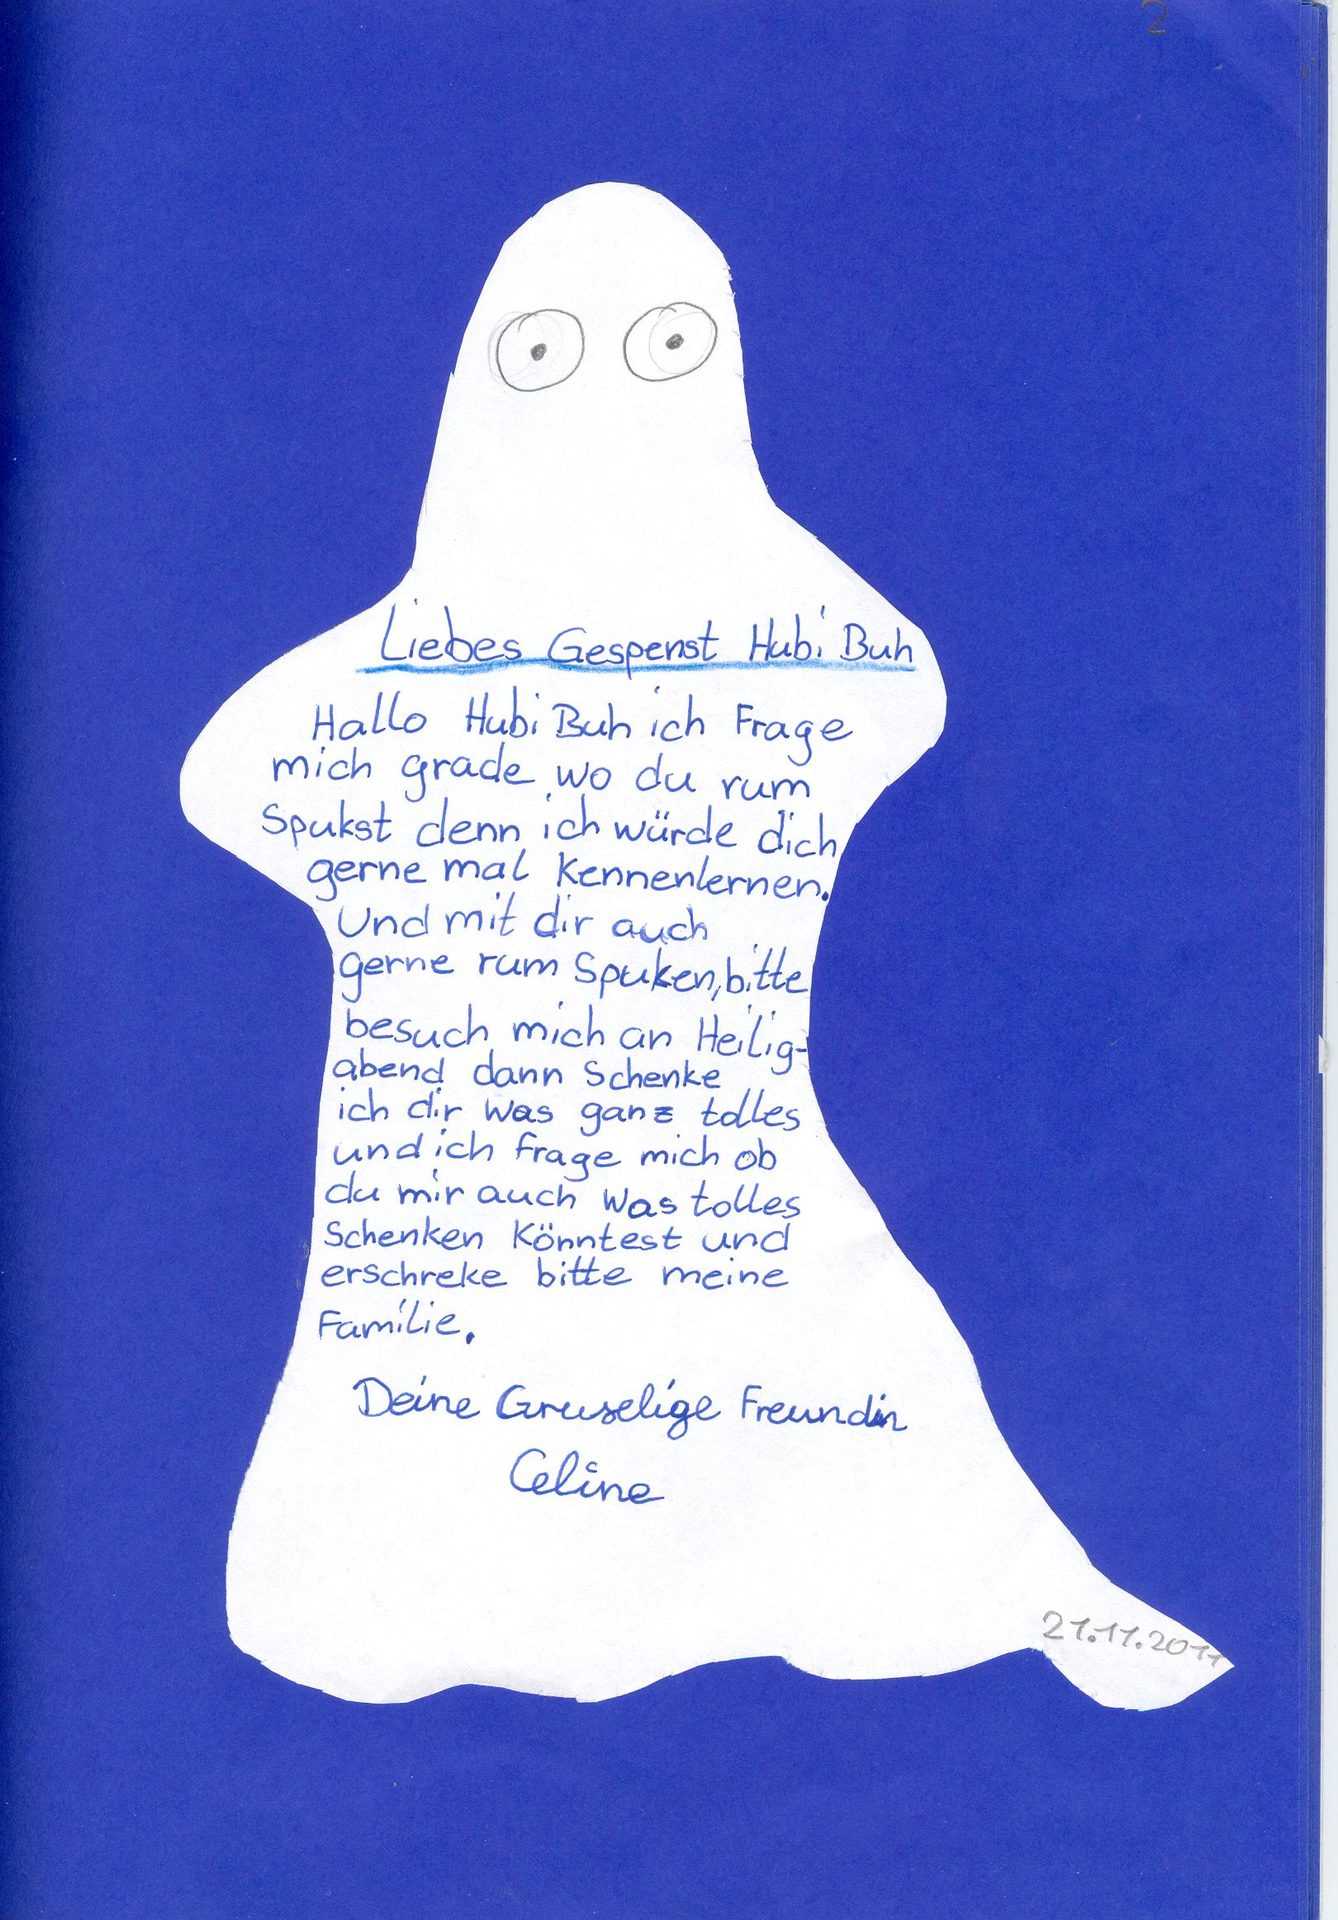 2
Liebes Gespenst Hubi Buh
Hallo Hubi Buh ich Frage
mich grade wo du rum
Spukst denn ich würde dich
gerne mal Kennenlernen.
Und mit dir auch
gerne rum Spuken, bitte
besuch mich an Heilig-
abend dann Schenke
ich dir was ganz tolles
und ich frage mich ob
du mir auch was tolles
Schenken Könntest und
erschreke bitte meine
Familie.
Deine Gruselige Freundin
Celine
21.11.2011